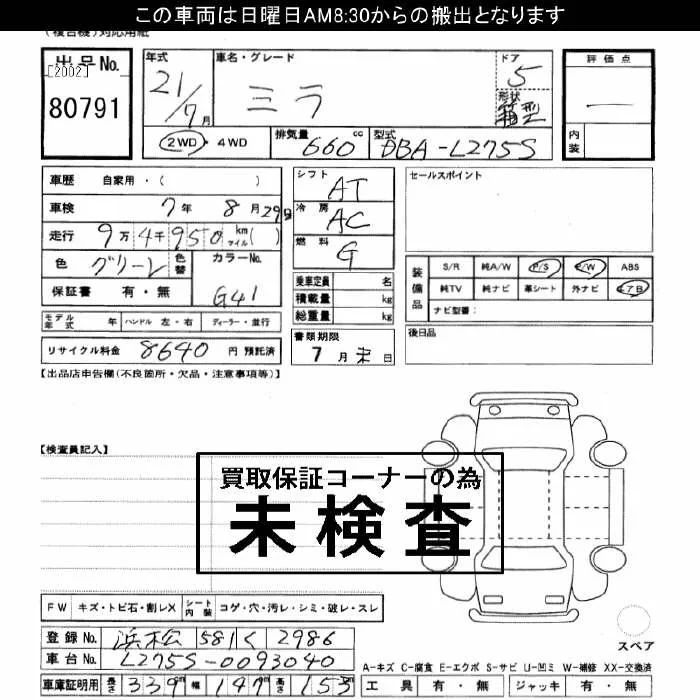 この車両は日曜日AM8:30からの搬出となります
(複合機)対応用紙
出品No.
[2002]
80791
年式
21/7月
車名・グレード
ミラ
ドア
5
形状
箱型
2WD・4WD
排気量
660cc
型式
DBA-L275S
評価点
—
内装
車歴 自家用・( )
車検 7年 8月29日
走行 9万4千950km マイル( )
色 グリーン 色替 カラーNo. G41
保証書 有・無
モデル年式 年 ハンドル 左・右 ディーラー・並行
リサイクル料金 8640円 預託済
シフト AT
冷房 AC
燃料 G
乗車定員 名
積載量 kg
総重量 kg
書類期限
7月末日
セールスポイント
装備品
S/R 純A/W P/S P/W ABS
純TV 純ナビ 革シート 外ナビ エアB
ナビ型番:
後日品
【出品店申告欄(不良箇所・欠品・注意事項等)】
【検査員記入】
買取保証コーナーの為
未検査
FW キズ・トビ石・割レX シート内装 コゲ・穴・汚レ・シミ・破レ・スレ
登録No. 浜松 581 く 2986
車台No. L275S-0093040
車庫証明用 長さ 339cm 幅 147cm 高さ 153cm
スペア
A-キズ C-腐食 E-エクボ S-サビ U-凹ミ W-補修 XX-交換済
工具 有・無 ジャッキ 有・無